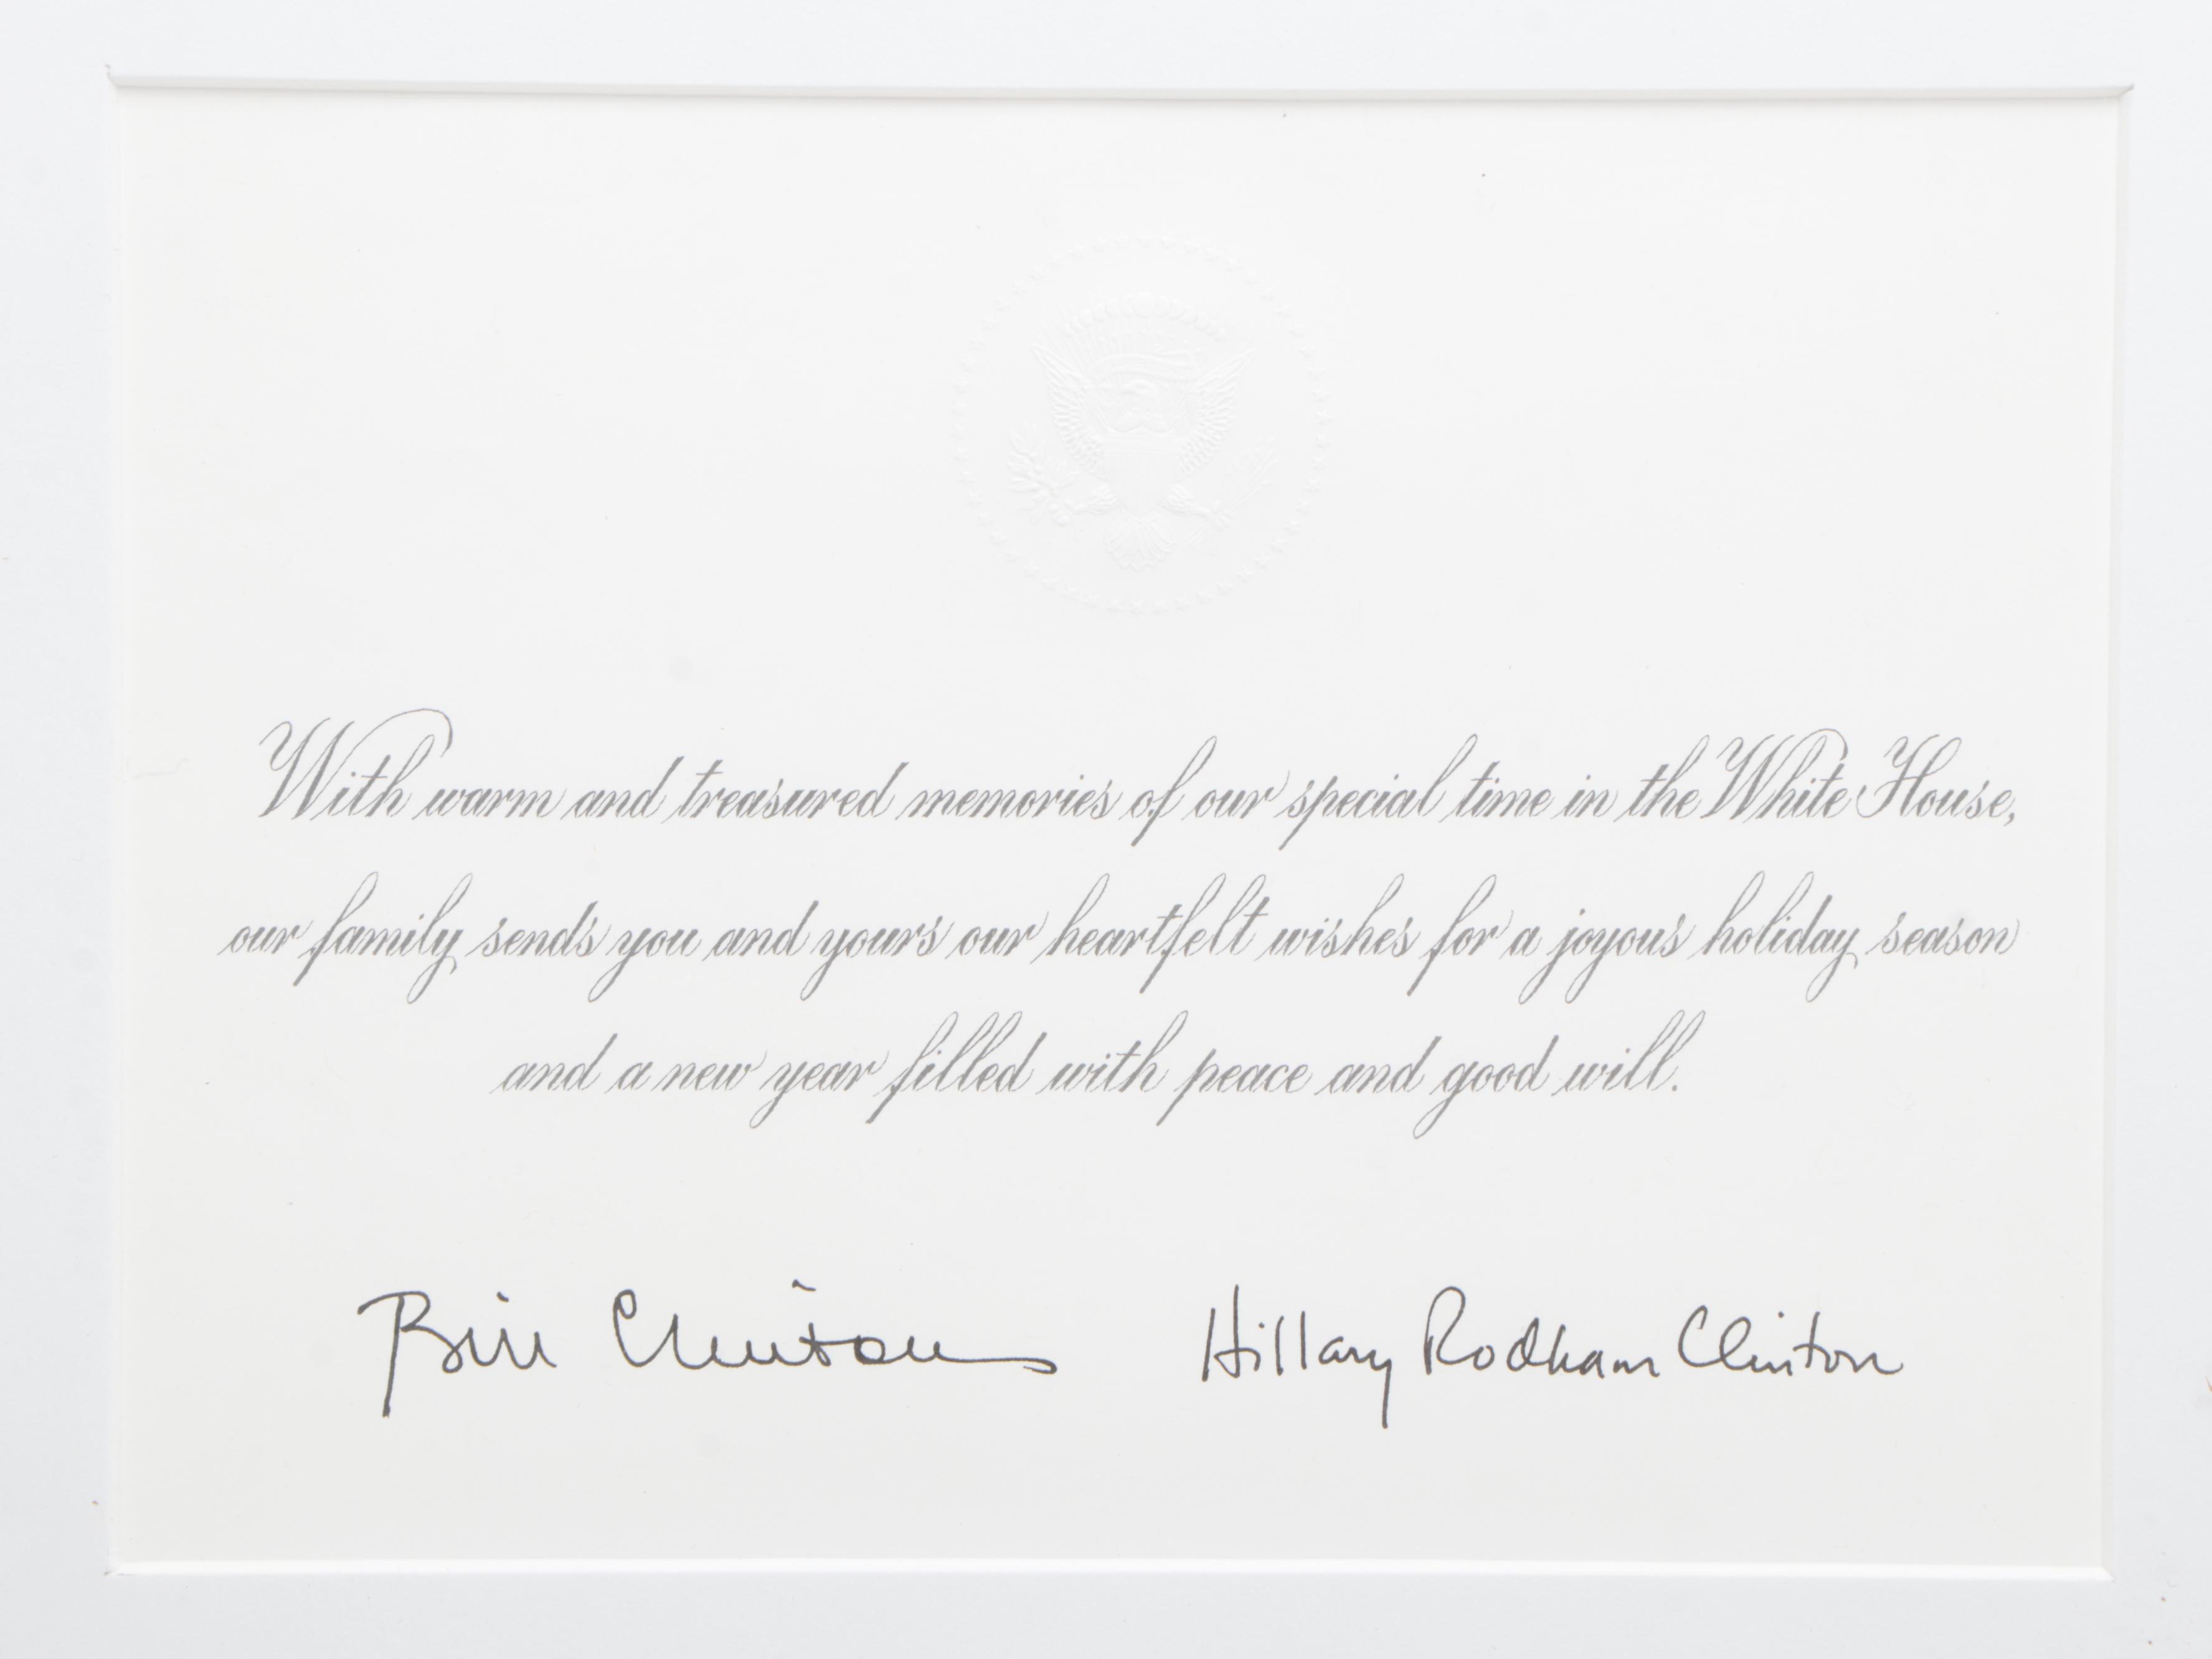 With warm and treasured memories of our special time in the White House,
our family sends you and yours our heartfelt wishes for a joyous holiday season
and a new year filled with peace and good will.
Bill Clinton Hillary Rodham Clinton